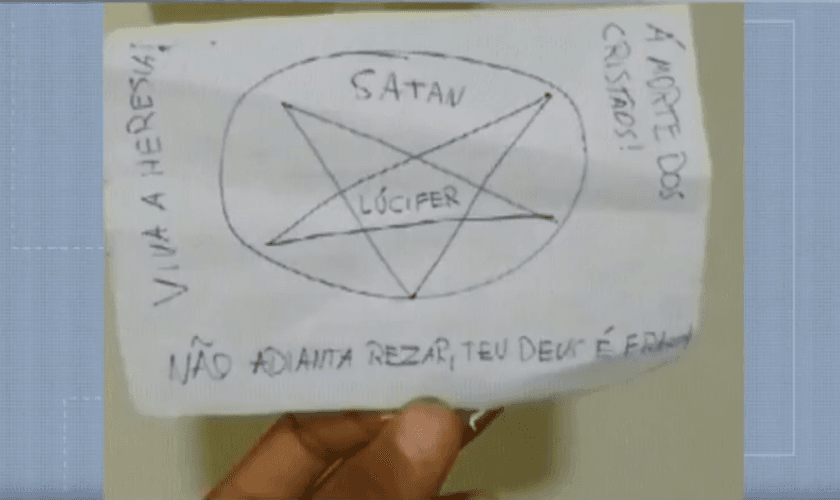 VIVA A HERESIA!
SATAN
LÚCIFER
Á MORTE DOS
CRISTÃOS!
NÃO ADIANTA REZAR, TEU DEUS É